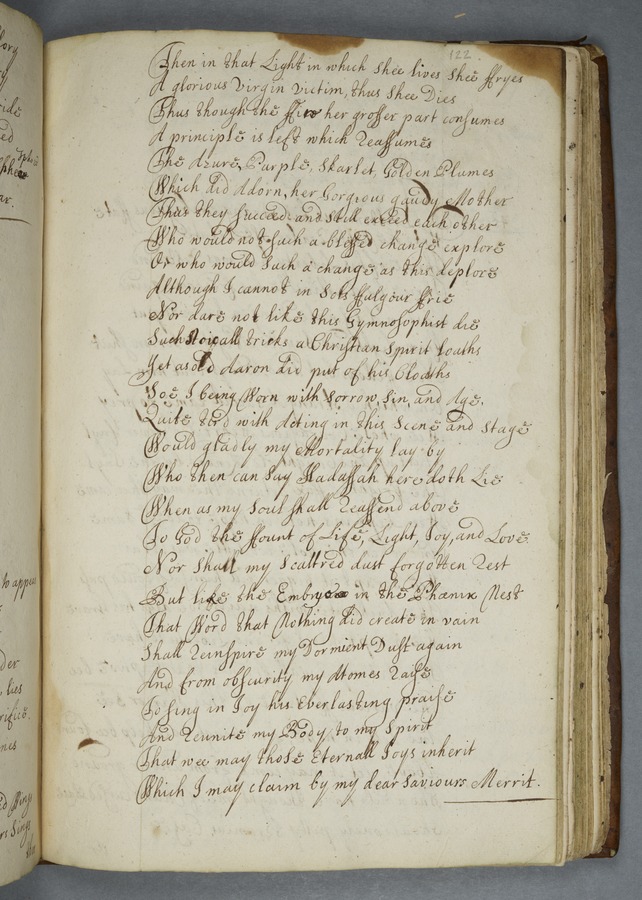 122
Then in that Light in which Shee lives Shee ffryes
A glorious Virgin Victim, thus Shee Dies
Thus though the ffire her grosser part consumes
A principle is left which Reassumes
The Azure, Purple, Skarlet, Golden Plumes
Which did Adorn, her Gorgious gaudy Mother
Thus they succeed and still exceed each other
Who would not such a blessed change explore
Or who would such a change as this deplore
Although I cannot in Sols ffulgour ffrie
Nor dare not like this Gymnosophist die
Such Stoicall tricks a Christian Spirit loaths
Yet as old Aaron did put of his Cloaths
Soe I being Worn with Sorrow, Sin, and Age,
Quite tird with Acting in this Scene and Stage
Would gladly my Mortality lay by
Who then can Say Hadassah here doth Lie
When as my Soul shall Reassend above
To God the ffount of Life, Light, Joy, and Love
Nor shall my Scattred dust forgotten rest
But like the in the Phœnix Nest
That Word that Nothing did create in vain
Shall Reinspire my Dormient Dust again
And from obscurity my Atomes Raise
To sing in Joy his Everlasting praise
And Reunite my Body to my Spirit
That wee may those Eternall Joys inherit
Which I may claim by my dear Saviours Merrit.
to appear